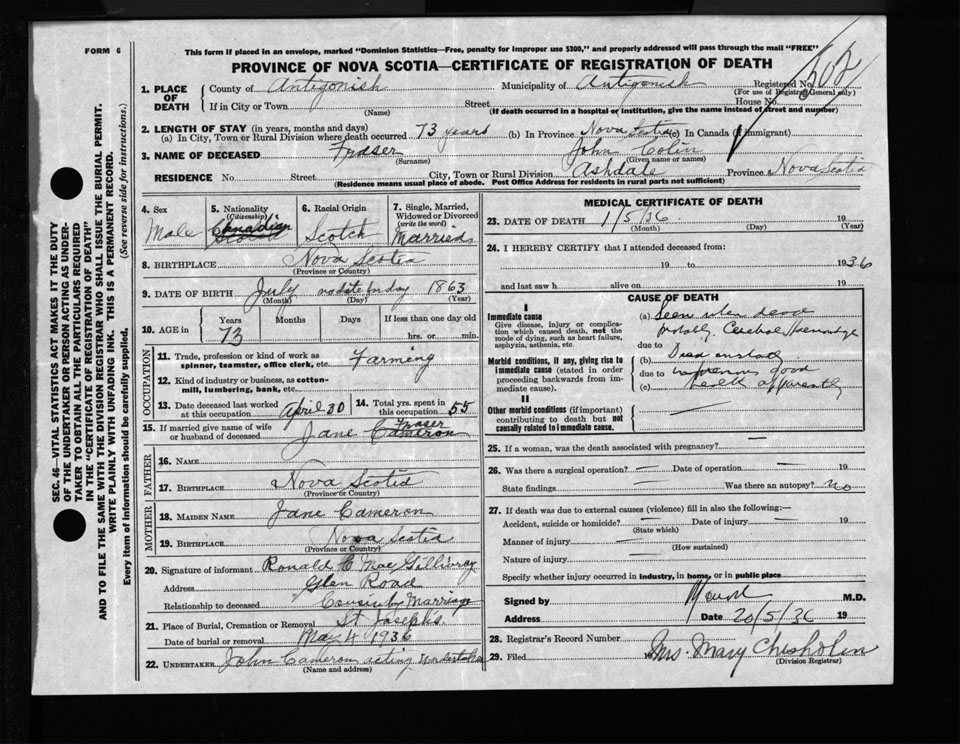 FORM 6
This form if placed in an envelope, marked "Dominion Statistics—Free, penalty for improper use $300," and properly addressed will pass through the mail "FREE"
PROVINCE OF NOVA SCOTIA—CERTIFICATE OF REGISTRATION OF DEATH
SEC. 46—VITAL STATISTICS ACT MAKES IT THE DUTY
OF THE UNDERTAKER OR PERSON ACTING AS UNDER-
TAKER TO OBTAIN ALL THE PARTICULARS REQUIRED
IN THE "CERTIFICATE OF REGISTRATION OF DEATH"
AND TO FILE THE SAME WITH THE DIVISION REGISTRAR WHO SHALL ISSUE THE BURIAL PERMIT.
WRITE PLAINLY WITH UNFADING INK. THIS IS A PERMANENT RECORD.
Every item of information should be carefully supplied. (See reverse side for instructions.)
1. PLACE OF DEATH
County of Antigonish Municipality of Antigonish Registered No. 502
(For use of Registrar General only)
If in City or Town Street House No.
(Name) (If death occurred in a hospital or institution, give the name instead of street and number)
2. LENGTH OF STAY (in years, months and days)
(a) In City, Town or Rural Division where death occurred 73 years (b) In Province Nova Scotia (c) In Canada (if immigrant)
3. NAME OF DECEASED Fraser John Colin
(Surname) (Given name or names)
RESIDENCE No. Street City, Town or Rural Division Ashdale Province Nova Scotia
(Residence means usual place of abode. Post Office Address for residents in rural parts not sufficient)
4. Sex
Male
5. Nationality
(Citizenship)
Canadian
6. Racial Origin
Scotch
7. Single, Married,
Widowed or Divorced
(write the word)
Married
8. BIRTHPLACE Nova Scotia
(Province or Country)
9. DATE OF BIRTH July no date for day 1863
(Month) (Day) (Year)
10. AGE in
Years Months Days If less than one day old
73 hrs. or min.
OCCUPATION
11. Trade, profession or kind of work as
spinner, teamster, office clerk, etc. Farming
12. Kind of industry or business, as cotton-
mill, lumbering, bank, etc.
13. Date deceased last worked
at this occupation April 30
14. Total yrs. spent in
this occupation 55
15. If married give name of wife
or husband of deceased Jane Fraser Cameron
FATHER
16. NAME
17. BIRTHPLACE Nova Scotia
(Province or Country)
MOTHER
18. MAIDEN NAME Jane Cameron
19. BIRTHPLACE Nova Scotia
(Province or Country)
20. Signature of informant Ronald C MacGillivray
Address Glen Road
Relationship to deceased Cousin by Marriage
21. Place of Burial, Cremation or Removal St Joseph's
Date of burial or removal May 4 1936
22. UNDERTAKER John Cameron acting Undertaker
(Name and address)
MEDICAL CERTIFICATE OF DEATH
23. DATE OF DEATH 1/5/36 19
(Month) (Day) (Year)
24. I HEREBY CERTIFY that I attended deceased from:
19 to 1936
and last saw h alive on 19
CAUSE OF DEATH
I
Immediate cause
Give disease, injury or complica-
tion which caused death, not the
mode of dying, such as heart failure,
asphyxia, asthenia, etc.
Morbid conditions, if any, giving rise to
immediate cause (stated in order
proceeding backwards from im-
mediate cause).
II
Other morbid conditions (if important)
contributing to death but not
causally related to immediate cause.
(a) Seen when dead
probably Cerebral Hemorrhage
due to
(b) Died
due to good
(c) health apparently
25. If a woman, was the death associated with pregnancy?
26. Was there a surgical operation? Date of operation 19
State findings Was there an autopsy? no
27. If death was due to external causes (violence) fill in also the following:—
Accident, suicide or homicide? Date of injury 19
(State which)
Manner of injury
(How sustained)
Nature of injury
Specify whether injury occurred in industry, in home, or in public place
Signed by M.D.
Address Date 20/5/36 19
28. Registrar's Record Number
29. Filed 19 Mrs. Mary Chisholm
(Division Registrar)